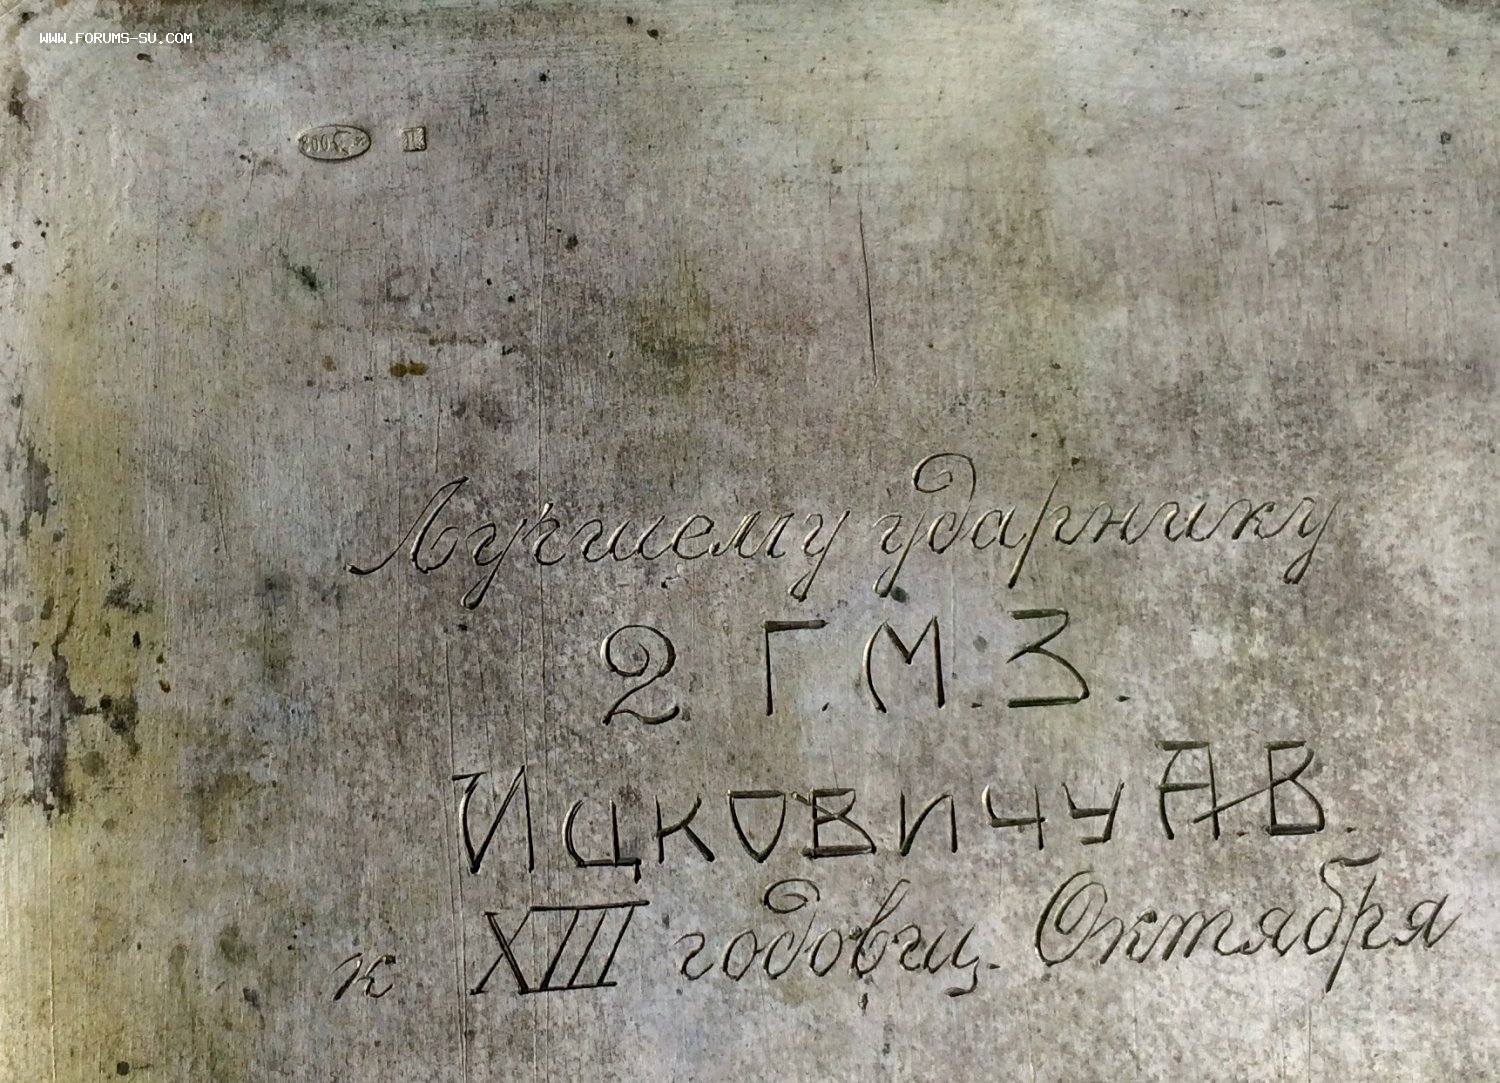 WWW.FORUMS-SU.COM
Лучшему ударнику
2 Г.М.З.
Ицковичу А.В.
к XIII годовщ. Октября